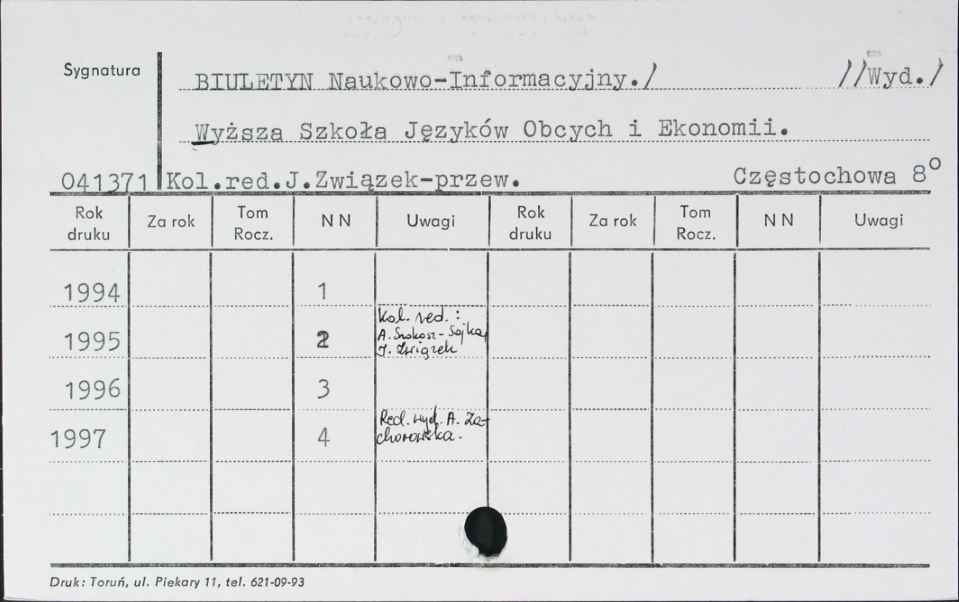 Sygnatura
BIULETYN Naukowo-Informacyjny./ //Wyd./
Wyższa Szkoła Języków Obcych i Ekonomii.
041371 Kol.red.J.Związek-przew. Częstochowa 8°
Rok druku Za rok Tom Rocz. N N Uwagi Rok druku Za rok Tom Rocz. N N Uwagi
1994 1
Kol. red. :
1995 2 A. Srokosz-Sojka,
J. Związek
1996 3
Red. wyd. A. Za-
1997 4 chorowska.
Druk: Toruń, ul. Piekary 11, tel. 621-09-93